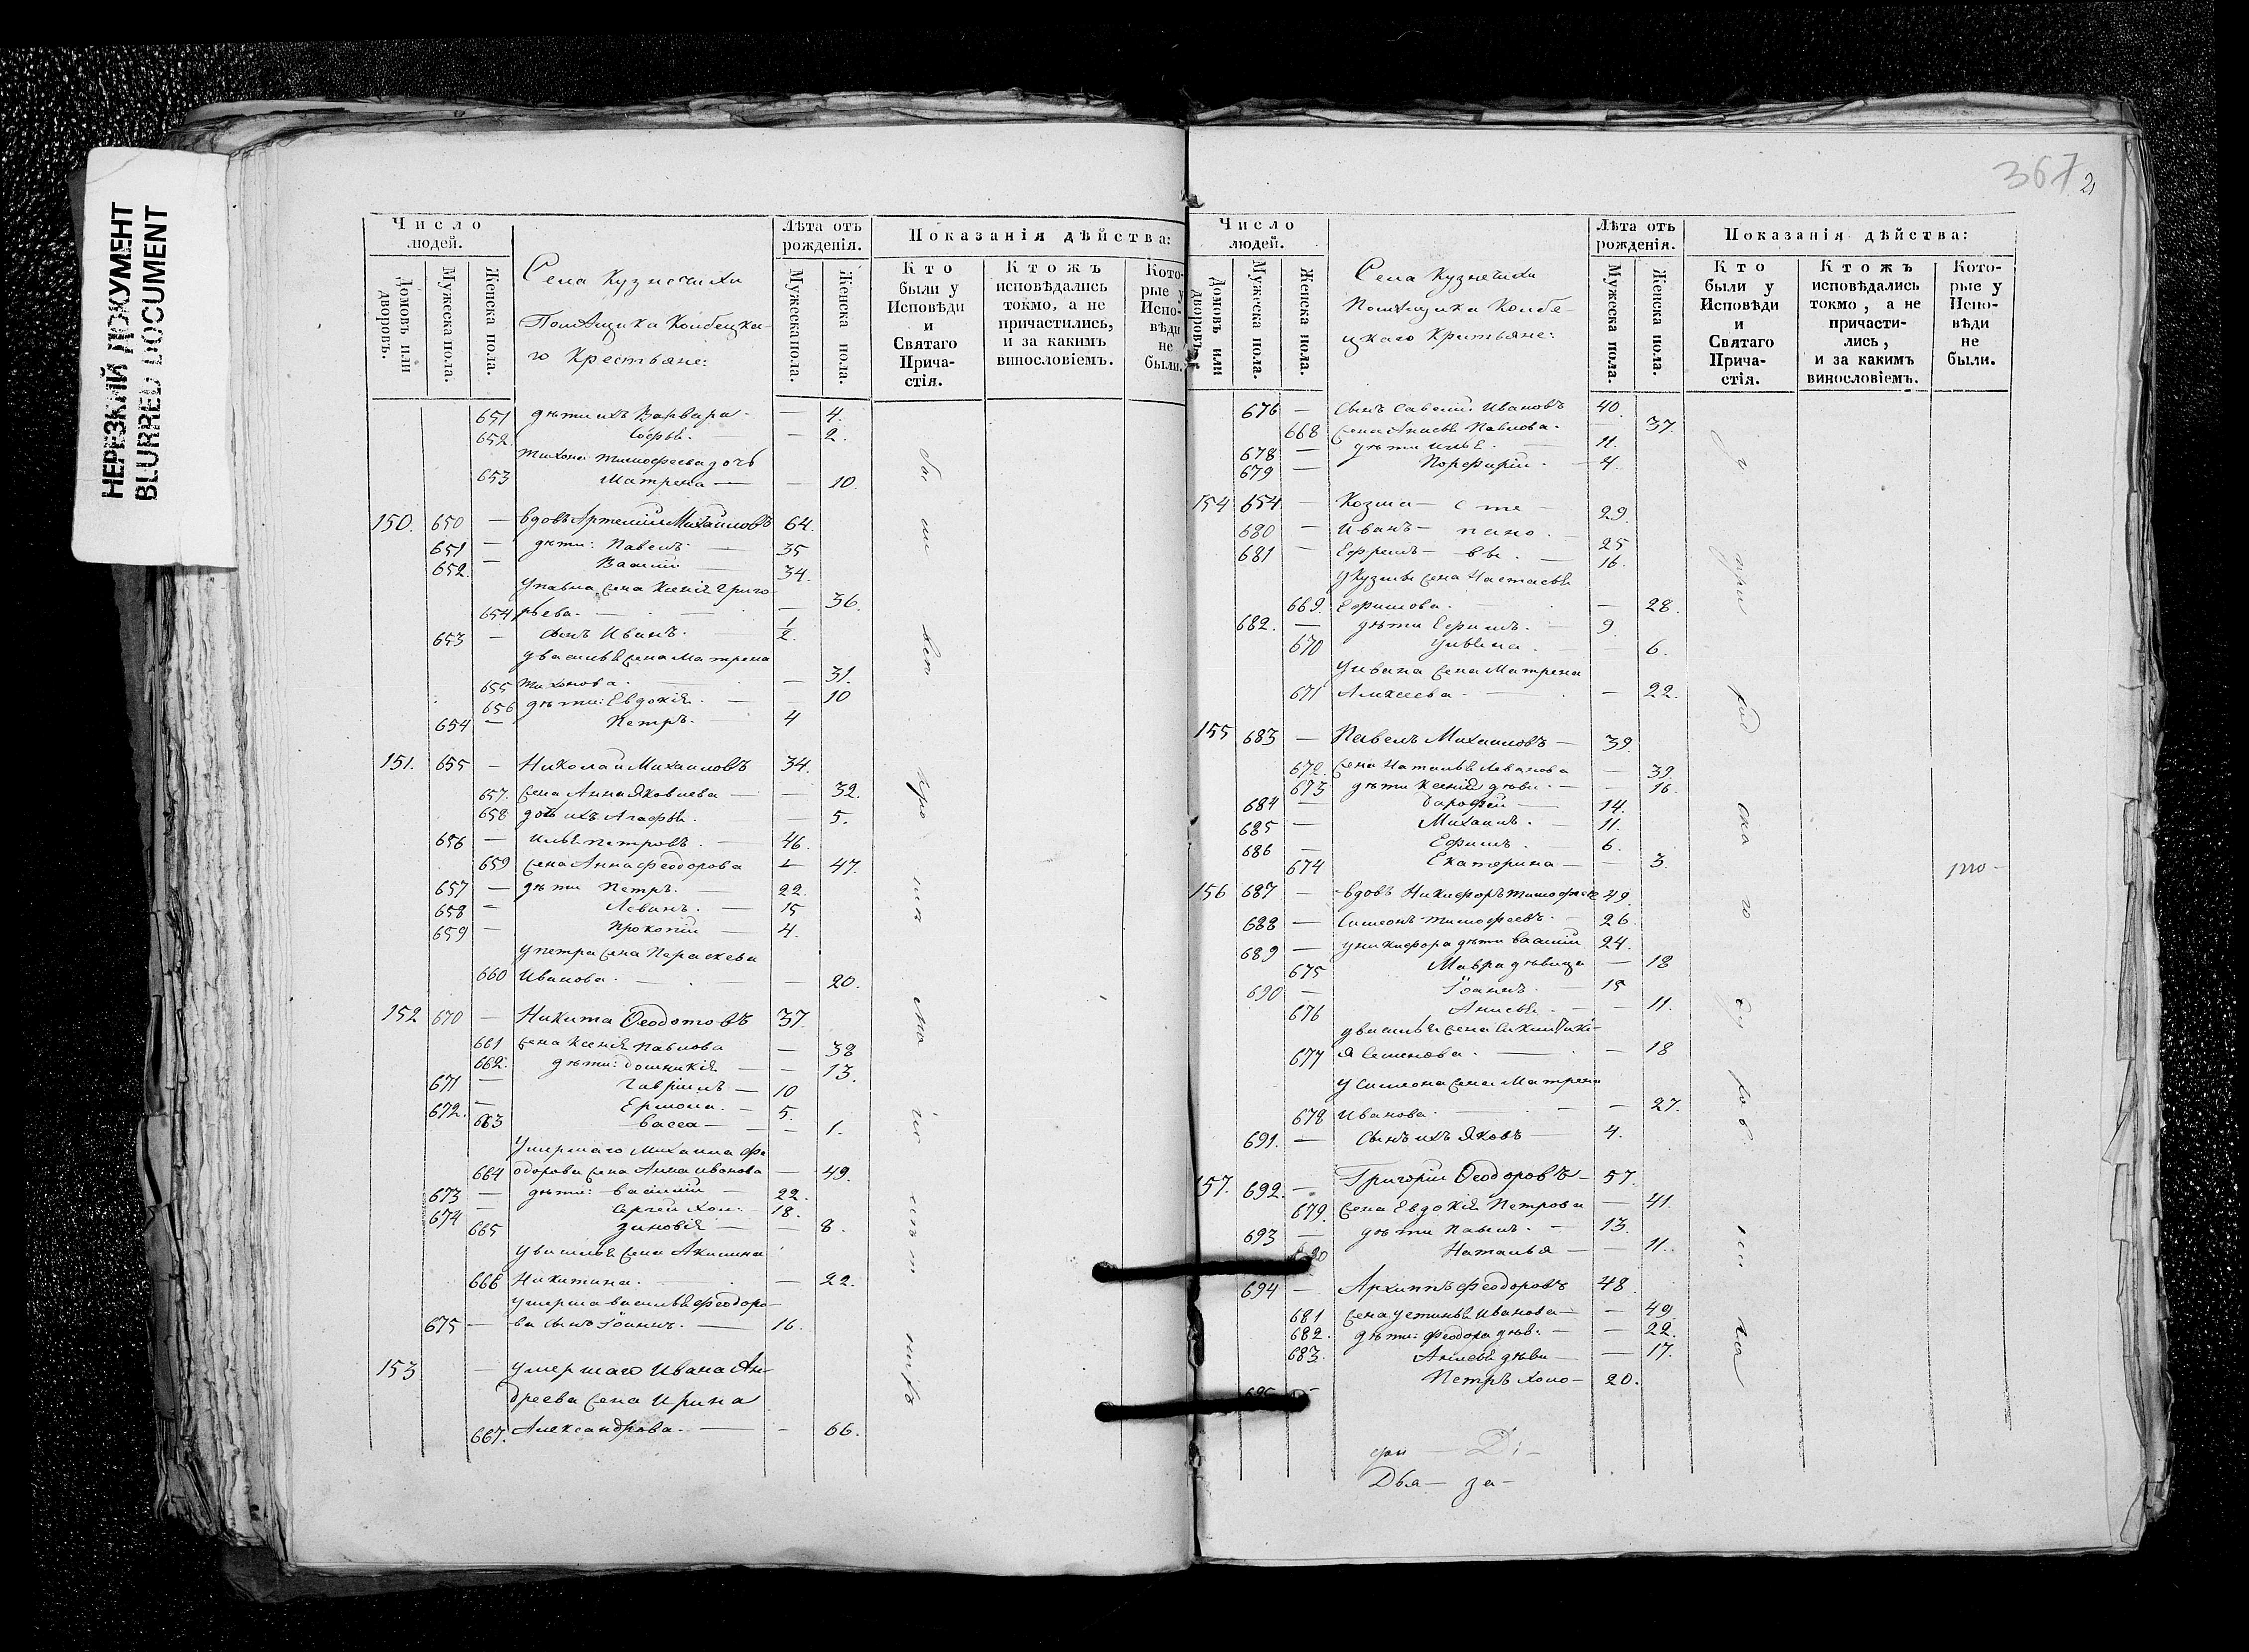 НЕРЕЗКИЙ ДОКУМЕНТ
BLURRED DOCUMENT
Число людей.
Домовъ или дворовъ.
Мужеска пола.
Женска пола.
Села Кузнечихи
Помѣщика Конбецка-
го Крестьяне:
Лѣта отъ рожденія.
Мужеска пола.
Женска пола.
Показанія дѣйства:
Кто были у Исповѣди и Святаго Прича-стія.
Ктожъ исповѣдались токмо, а не причастились, и за какимъ винословіемъ.
Кото-рые у Испо-вѣди не были.
651 дѣти ихъ Варвара - — 4.
652. Софья. — — 2.
Тихона Тимофеева дочь
653 Матрена — — 10.
150. 650 — вдовъ Артемій Михайловъ 64.
651 — дѣти: Павелъ — 35
652. — Василій — 34.
У Павла жена Ксенія Григо-
654 рьева. — — 36.
653 — сынъ Иванъ. 1/2.
У Василья жена Матрена
655 Тихонова. — — 31.
656 дѣти: Евдокія. — 10
654 — Петръ. — 4
151. 655 — Николай Михаиловъ 34.
657. жена Анна Яковлева — — 32.
658 дочь ихъ Агафья. — 5.
656 — Илья Петровъ. — 46.
659 жена Анна Феодорова — 47.
657 — дѣти Петръ. — 22.
658 — Леванъ. — 15
659 — Прокопій — 4.
У Петра жена Параскева
660 Иванова. — — 20.
152 670 — Никита Ѳеодотовъ 37.
661 жена Ксенія Павлова — 38
662. дѣти: Домникія — — 13.
671 — Гавріилъ — 10
672. — Ермола. — 5.
663 Васса — — 1.
Умершаго Михаила Фе-
664 одорова жена Анна Иванова — 49.
673 — дѣти: Василій — 22.
674 — Сергей хол: — 18.
665 Зиновія — — 8.
У Василья жена Акилина
666 Никитина. — — 22.
Умерша Василья Феодоро-
675 — ва сынъ Іоаннъ. — 16.
153 — Умершаго Ивана Ан-
дреева жена Ирина
667. Александрова. — — 66.
367
Число людей.
Домовъ или дворовъ.
Мужеска пола.
Женска пола.
Села Кузнечихи
Помѣщика Конбе-
цкаго Крестьяне:
Лѣта отъ рожденія.
Мужеска пола.
Женска пола.
Показанія дѣйства:
Кто были у Исповѣди и Святаго Прича-стія.
Ктожъ исповѣдались токмо, а не причасти-лись, и за какимъ винословіемъ.
Кото-рые у Испо-вѣди не были.
676 — сынъ Савелій Ивановъ 40.
668 жена Анисья Павлова. — 37.
678 — дѣти Илья. — 11.
679 — Порфирій. — 4.
154 654 — Козма — Сте — 29.
680 — Иванъ — пано — 25
681 — Ефремъ — вы. — 16.
У Кузьмы жена Настасья
669. Ефимова. — — 28.
682. — дѣти Ефимъ. — 9.
670 — 6.
У Ивана жена Матрена
671 Алексеева. — — 22.
155 683 — Павелъ Михаиловъ — 39.
672. жена Наталья Леванова — 39.
673 дѣти Ксенія дѣви. — — 16.
684 — Дарофей — 14.
685 — Михаилъ. — 11.
686 — Ефимъ. — 6.
674 Екатерина — — 3.
156 687 — вдовъ Никифоръ Тимофеев 49.
688 — Симеонъ Тимофеевъ. — 26.
689 — У Никифора дѣти Василій 24.
675 Мавра дѣвица — 18
690 — Іоаннъ. — 15
676 Анисья. — — 11.
677 я Семенова. — — 18
У Симеона жена Матрена
678 Иванова. — — 27.
691. — сынъ ихъ Яковъ — 4.
157. 692. — Григорій Ѳеодоровъ — 57.
679. жена Евдокія Петрова — 41.
693 — дѣти Павелъ. — 13.
680 Наталья — — 11.
694 — Архиппъ Феодоровъ 48.
681 жена Устинья Иванова — — 49.
682. дѣти: Феодора дѣв: — — 22.
683. Анисья дѣви — — 17.
695 — Петръ холо — 20.
Дья — за —